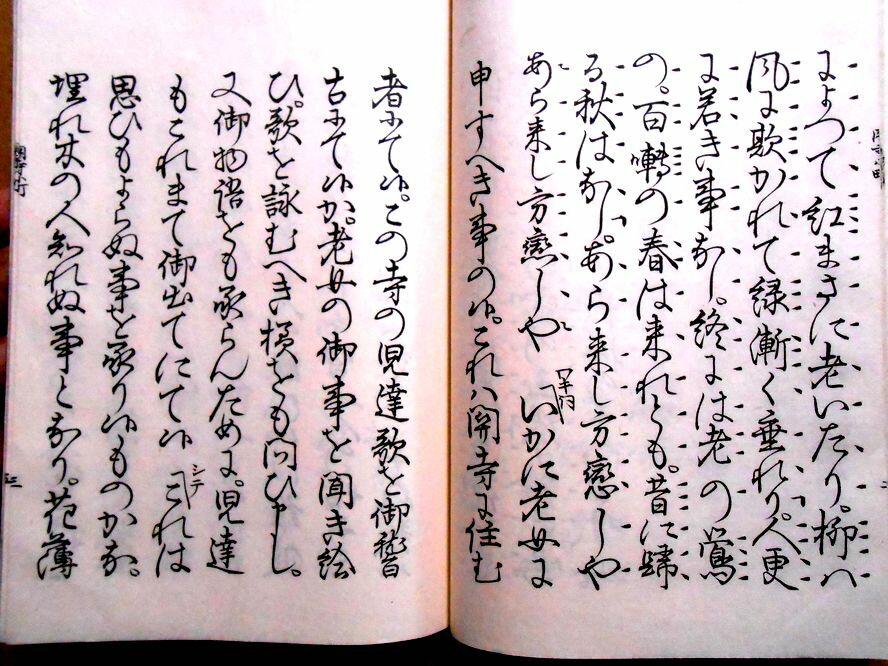 によつて紅まさに老いたり。柳ハ
風に欺かれて緑漸く垂れり。人更
に若き事なし。終には老の鶯
の。百囀の春は来れども。昔に歸
る秋はなし。あら来し方戀しや
あら来し方戀しや
ワキ詞
いかに老女に
申すへき事の候。これハ関寺に住む
者にて候。この寺の児達歌を御稽
古にて候か。老女の御事を聞き給
ひ。歌を詠むへき様をも問ひ申し。
又御物語をも承らんために。児達
もこれまて御出てにて候
シテ
これは
思ひもよらぬ事を承り候ものかな。
埋れ木の人知れぬ事となり。花薄
関寺小町
三